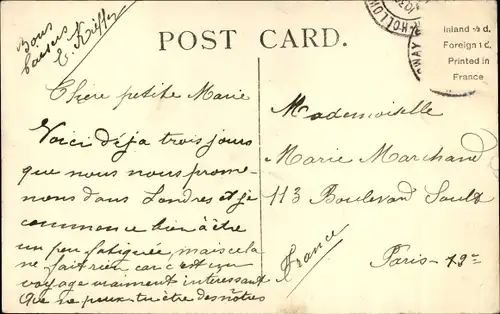 Bons
baisers
E. Kieffer
POST CARD.
HOLLOWAY
Inland ½d.
Foreign 1d.
Printed in
France
Chère petite Marie
Voici déja trois jours
que nous nous prome-
nons dans Londres et je
commence bien à être
un peu fatiguée, mais cela
ne fait rien car c'est un
voyage vraiment interessant
Que ne peux tu être des nôtres
Mademoiselle
Marie Marchand
113 Boulevard Soult
Paris - 12e
France